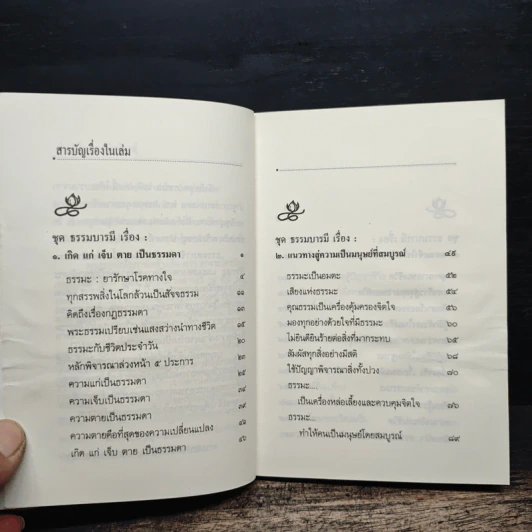 สารบัญเรื่องในเล่ม
ชุด ธรรมบารมี เรื่อง :
๑. เกิด แก่ เจ็บ ตาย เป็นธรรมดา ๑
ธรรมะ : ยารักษาโรคทางใจ ๔
ทุกสรรพสิ่งในโลกล้วนเป็นสัจจธรรม
คิดถึงเรื่องกฎธรรมดา
พระธรรมเปรียบเช่นแสงสว่างนำทางชีวิต
ธรรมะกับชีวิตประจำวัน
หลักพิจารณาล่วงหน้า ๕ ประการ
ความแก่เป็นธรรมดา
ความเจ็บเป็นธรรมดา
ความตายเป็นธรรมดา
ความตายคือที่สุดของความเปลี่ยนแปลง
เกิด แก่ เจ็บ ตาย เป็นธรรมดา
ชุด ธรรมบารมี เรื่อง :
๒. แนวทางสู่ความเป็นมนุษย์ที่สมบูรณ์ ๔๙
ธรรมะเป็นอมตะ ๕๒
เสียงแห่งธรรมะ ๕๔
คุณธรรมเป็นเครื่องคุ้มครองจิตใจ ๕๖
มองทุกอย่างด้วยใจที่มีธรรมะ ๖๐
ไม่ยินดียินร้ายต่อสิ่งที่มากระทบ ๖๔
สัมผัสทุกสิ่งอย่างมีสติ ๖๘
ใช้ปัญญาพิจารณาสิ่งทั้งปวง ๗๐
ธรรมะ....
เป็นเครื่องหล่อเลี้ยงและควบคุมจิตใจ ๗๖
ธรรมะ....
ทำให้คนเป็นมนุษย์โดยสมบูรณ์ ๘๙